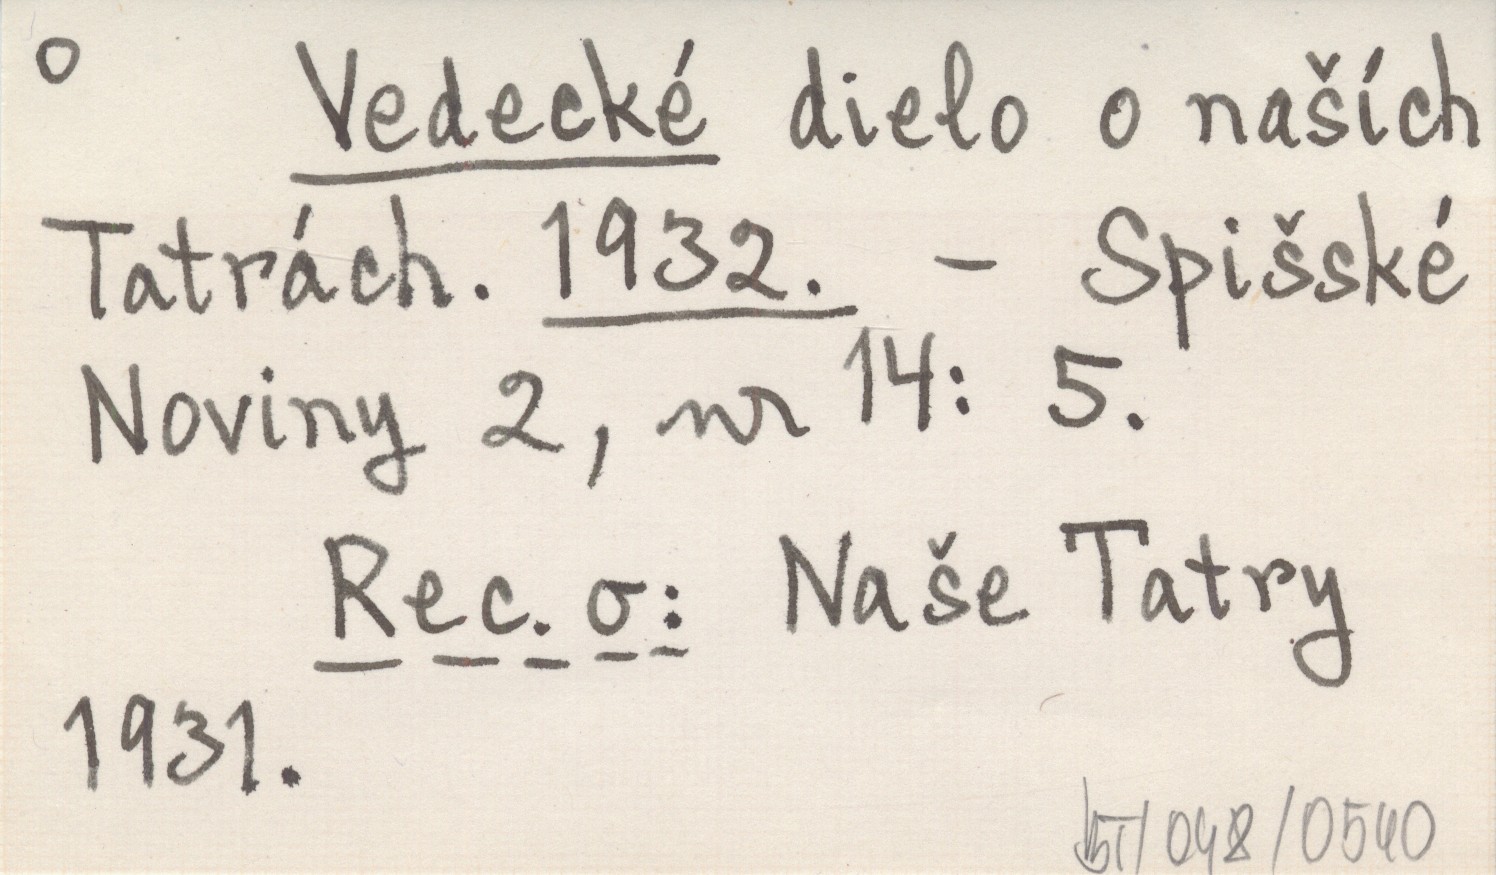 o Vedecké dielo o naších
Tatrách. 1932. - Spišské
Noviny 2, nr 14: 5.
Rec. o: Naše Tatry
1931.
/048/0540